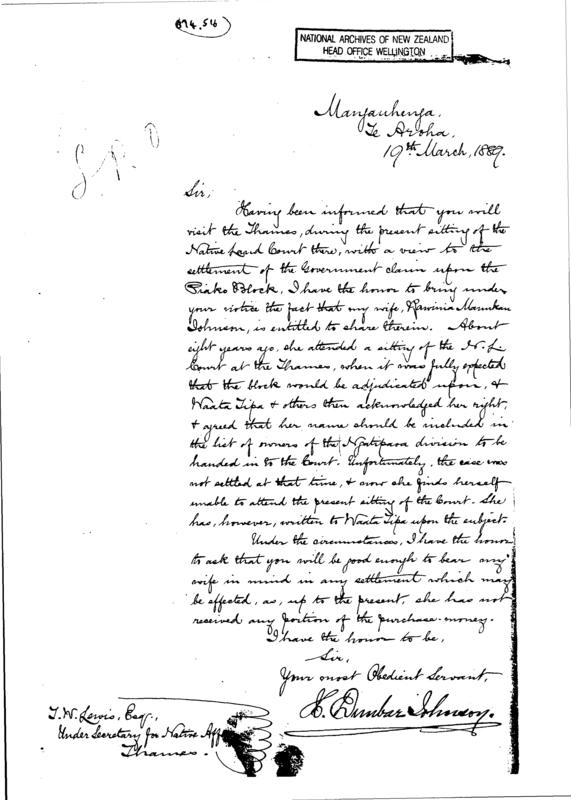 NATIONAL ARCHIVES OF NEW ZEALAND
HEAD OFFICE WELLINGTON
Te Aroha,
19th March, 1889.
Sir,
Having been informed that you will
visit the Thames, during the present sitting of the
Native Land Court there, with a view to the
settlement of the Government claim upon the
Piako Block, I have the honor to bring under
your notice the fact that my wife, Rawinia Manukau
Johnson, is entitled to share therein. About
eight years ago, she attended a sitting of the N. L.
Court at the Thames, when it was fully expected
that the block would be adjudicated upon, &
Waata Tipa & others then acknowledged her right,
& agreed that her name should be included in
the list of owners of the Ngatipaoa division to be
handed in to the Court. Unfortunately, the case was
not settled at that time, & now she finds herself
unable to attend the present sitting of the Court. She
has, however, written to Waata Tipa upon the subject.
Under the circumstances, I have the honor
to ask that you will be good enough to bear my
wife in mind in any settlement which may
be effected, as, up to the present, she has not
received any portion of the purchase-money.
I have the honor to be,
Sir,
Your most Obedient Servant,
H. Dunbar Johnson.
T. W. Lewis, Esq.,
Under Secretary for Native Aff
Thames.